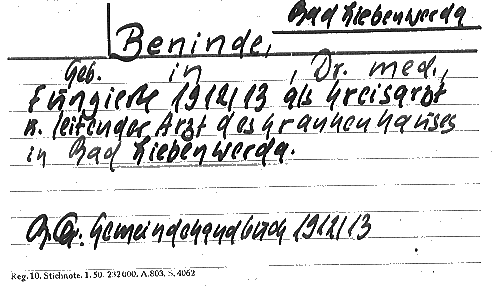 Bad Liebenwerda
Beninde,
Geb. in , Dr. med.,
fungierte 1912/13 als Kreisarzt
u. leitender Arzt des Krankenhauses
in Bad Liebenwerda.
Gemeindehandbuch 1912/13
Reg. 10. Stichnote. 1. 50. 232000. A.803. S. 4062